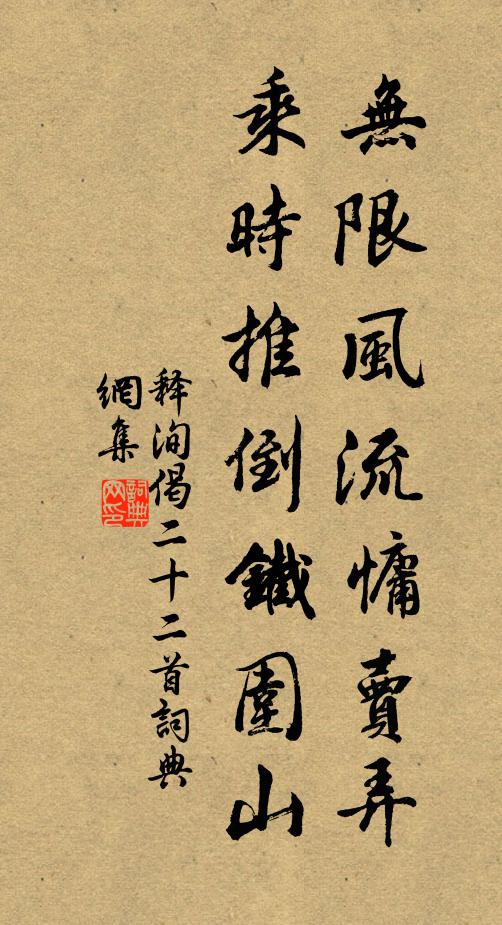 無限風流慵賣弄
乘時推倒鐵圍山
释洵偈二十二首詞典
網集
詞典
网印